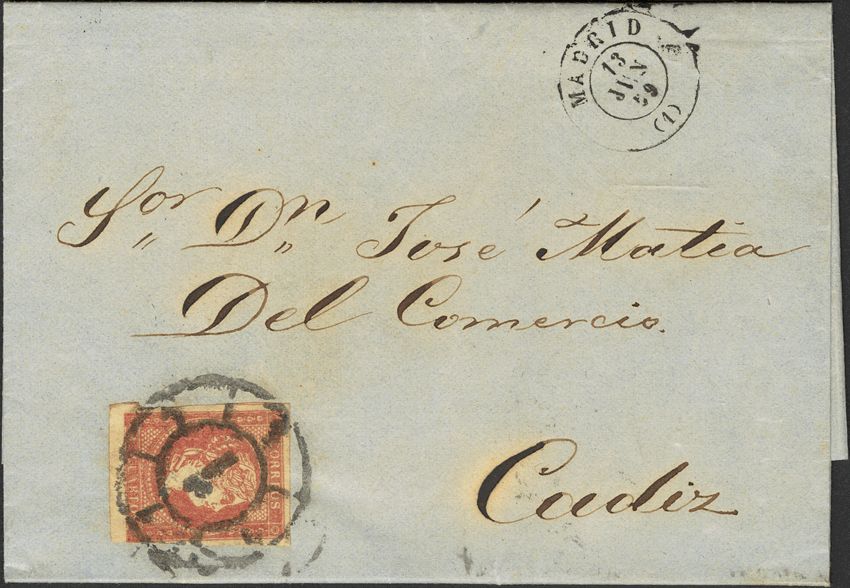 MADRID
13
JUN
59
(1)
Sor Dn José Matia
Del Comercio.
CORREOS
Cadiz